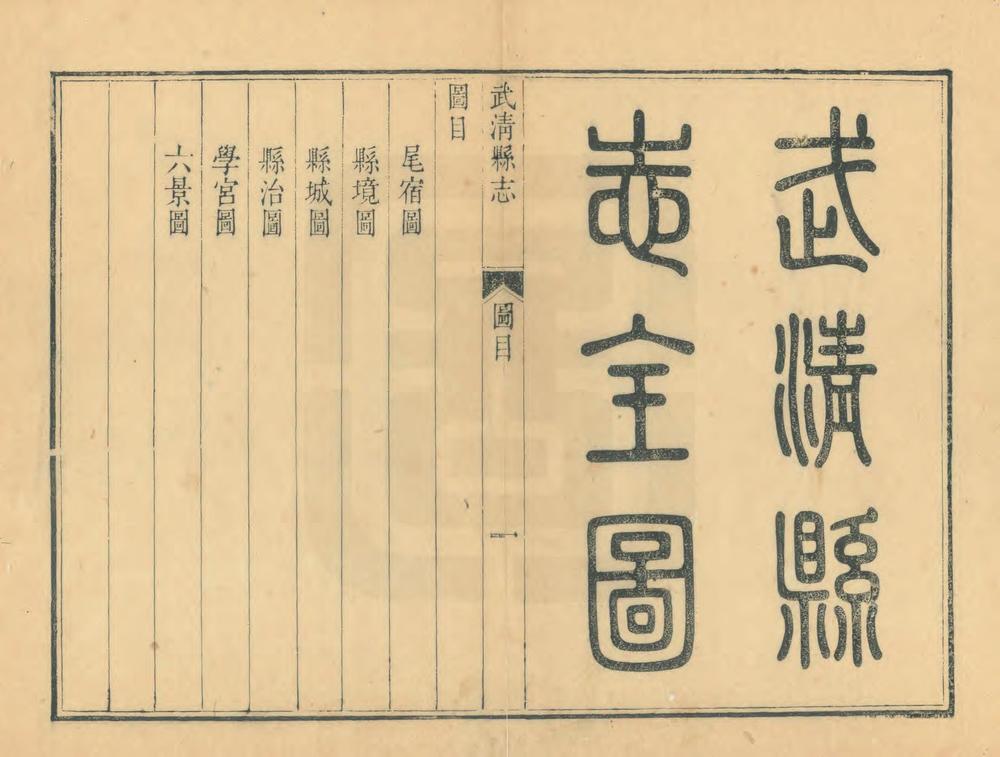 武清縣
志全圖
武清縣志
圖目
一
圖目
尾宿圖
縣境圖
縣城圖
縣治圖
學宮圖
六景圖